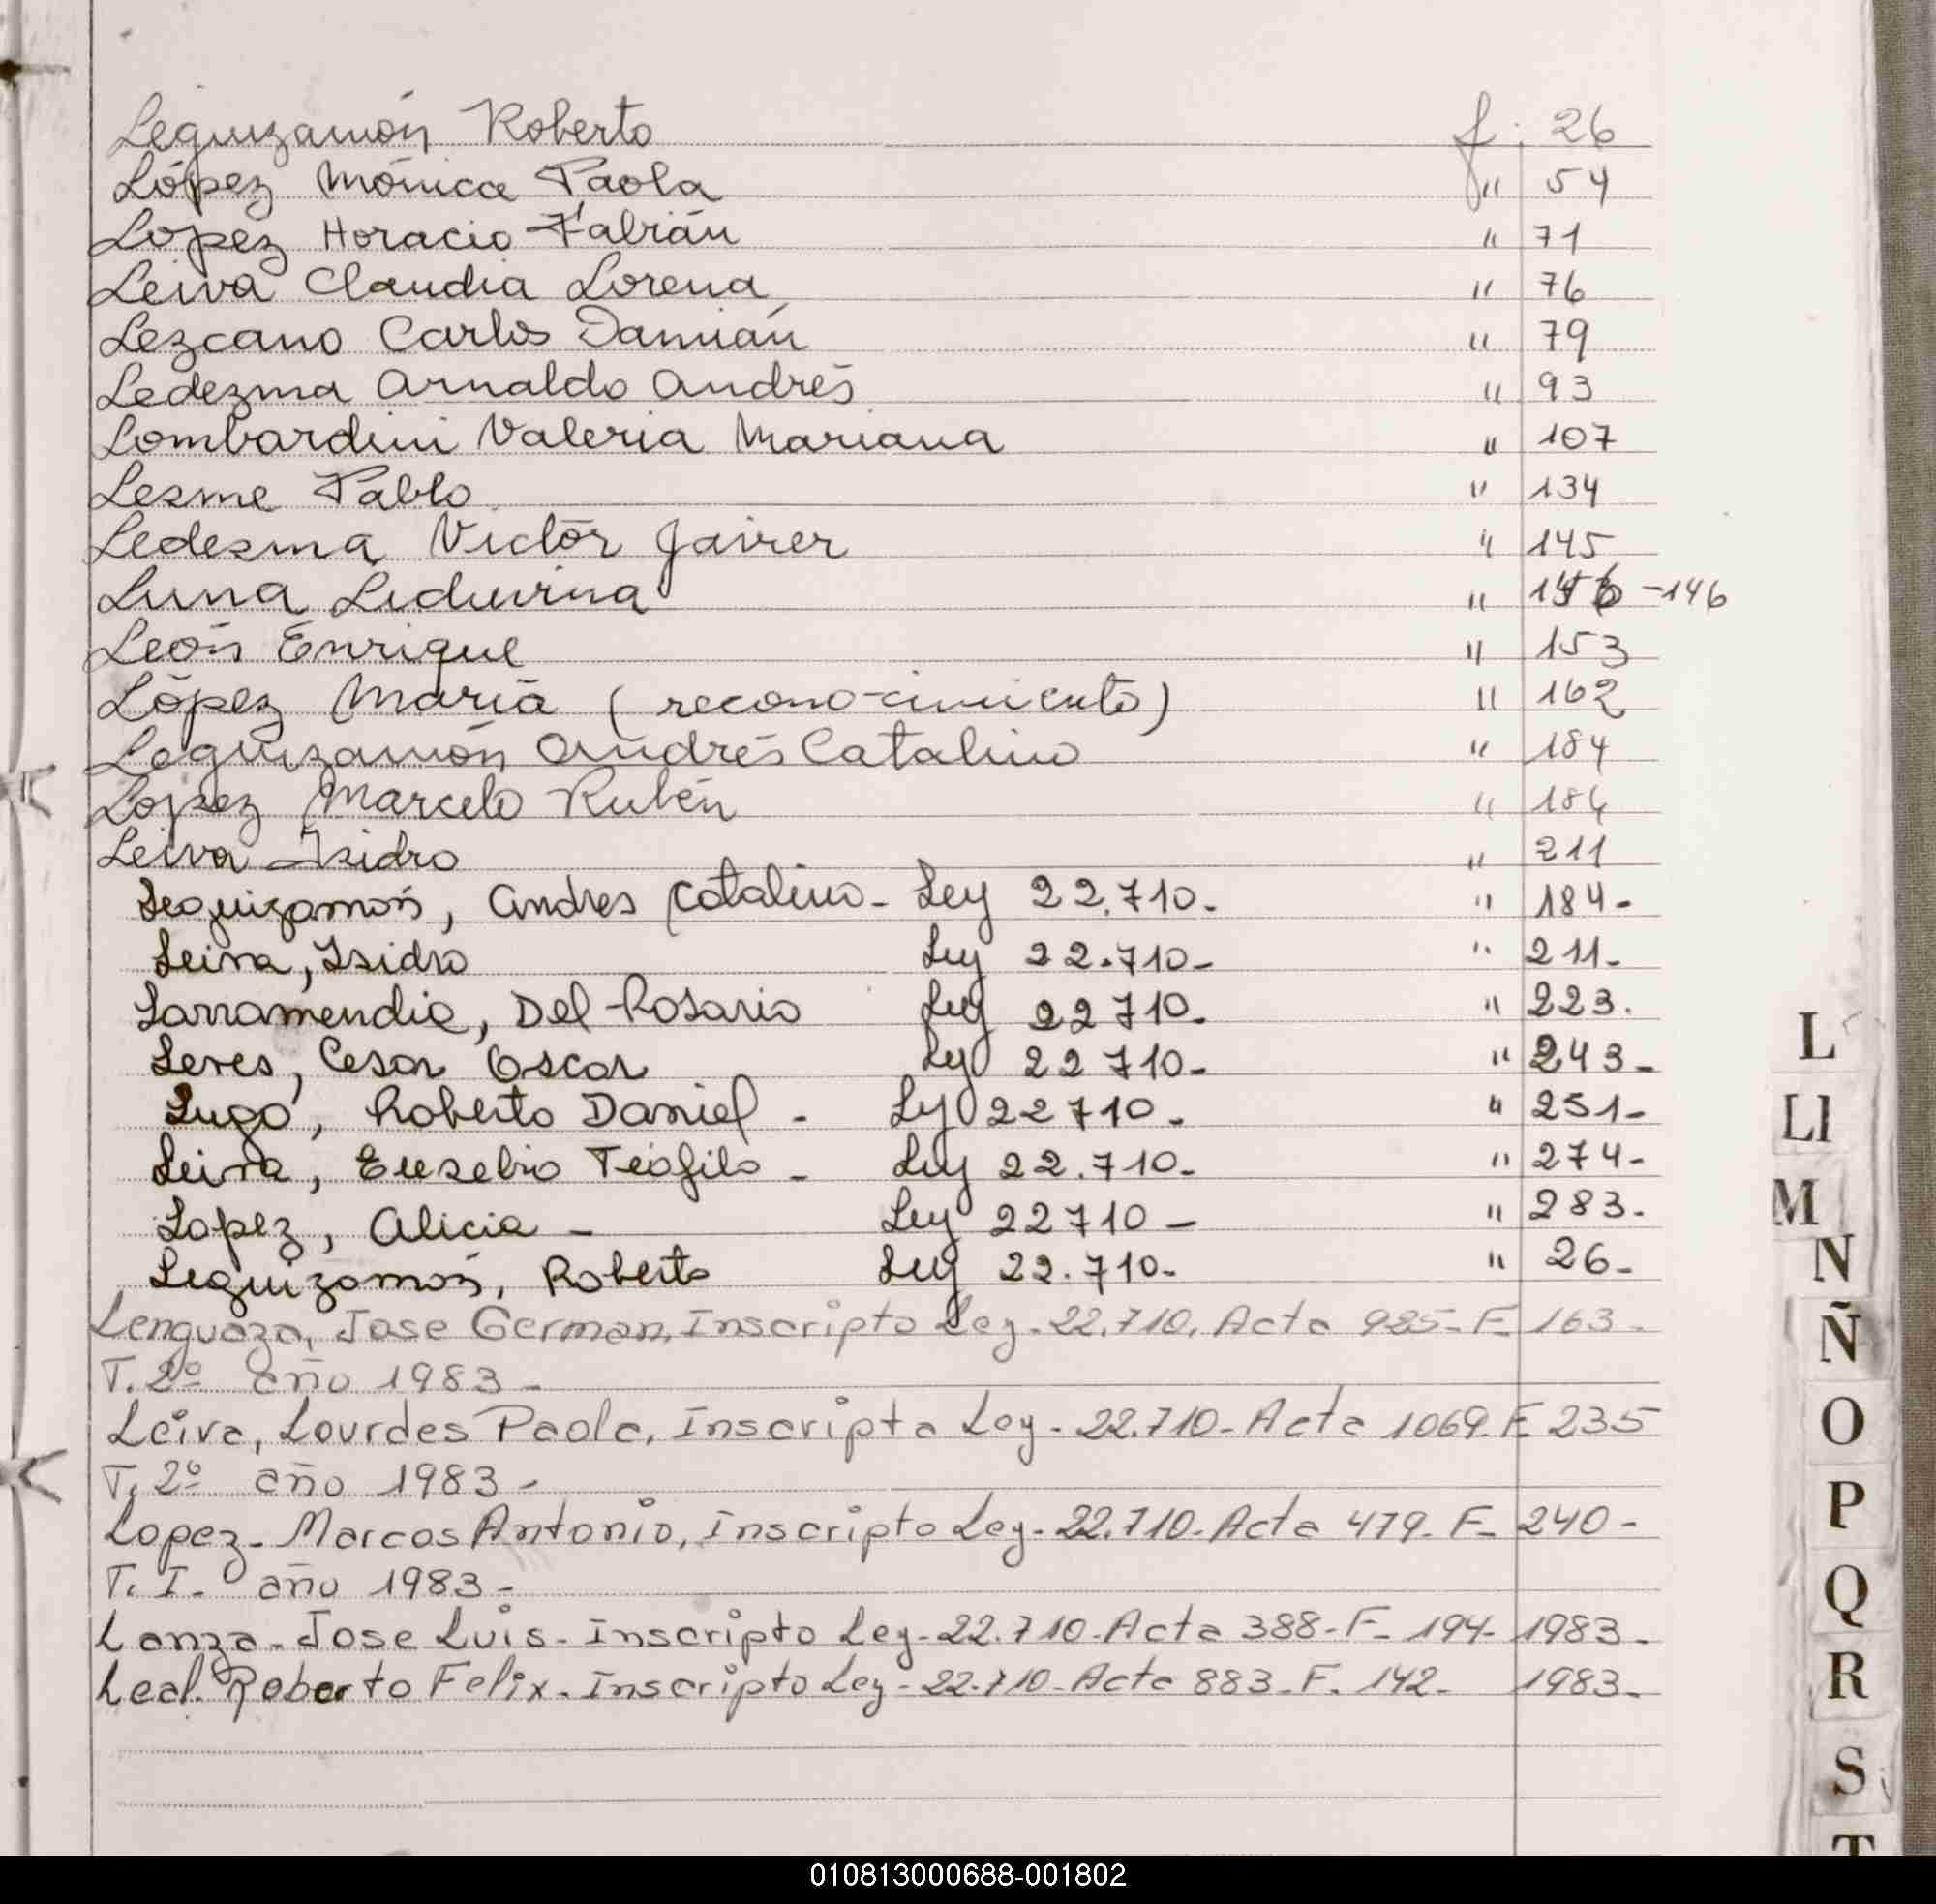 Leguizamón Roberto f. 26
López Mónica Paola " 54
López Horacio Fabián " 71
Leiva Claudia Lorena " 76
Lezcano Carlos Damián " 79
Ledezma Arnaldo Andrés " 93
Lombardini Valeria Mariana " 107
Lesme Pablo " 134
Ledesma Victor Javier " 145
Luna Liduvina " 146 -146
León Enrique " 153
López María (reconocimiento) " 162
Leguizamón Andrés Catalino " 184
Lopez Marcelo Rubén " 186
Leiva Isidro " 211
Leguizamón, Andres Catalino - Ley 22.710- " 184-
Leiva, Isidro Ley 22.710- " 211-
Larramendia, Del Rosario Ley 22710. " 223.
Leves, Cesar Oscar Ley 22710- " 243-
Lugo, Roberto Daniel - Ley 22710- " 251-
Leiva, Eusebio Teofilo - Ley 22.710- " 274-
Lopez, Alicia - Ley 22710- " 283-
Leguizamón, Roberto Ley 22.710- " 26-
Lenguaza, Jose German, Inscripto Ley-22.710, Acta 985-F- 163-
T. 2º año 1983-
Leiva, Lourdes Paola, Inscripta Ley-22.710-Acta 1069-F 235
T. 2º año 1983-
Lopez-Marcos Antonio, Inscripto Ley-22.710-Acta 479-F- 240-
T. I- año 1983-
Lanza-Jose Luis-Inscripto Ley-22.710-Acta 388-F- 194- 1983-
Leal. Roberto Felix-Inscripto Ley-22.710-Acta 883-F. 142- 1983-
L
Ll
M
N
Ñ
O
P
Q
R
S
T
010813000688-001802